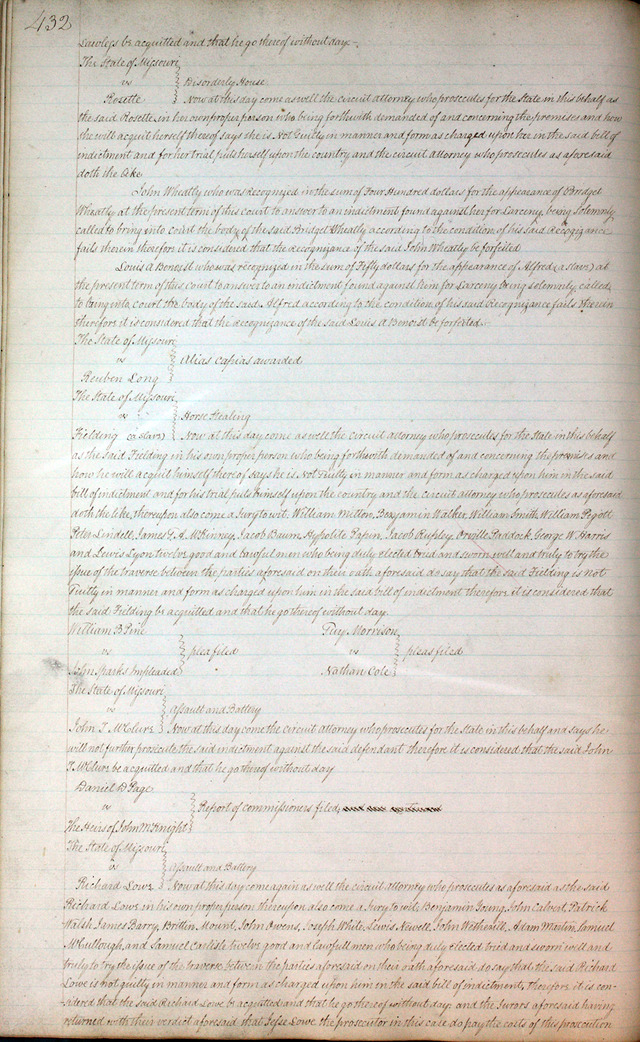 432
Lawless be acquitted and that he go thereof without day.
The State of Missouri
vs } Disorderly House
Rosette Now at this day come as well the circuit attorney who prosecutes for the State in this behalf as
the said Rosette in her own proper person who being forthwith demanded of and concerning the premises and how
she will acquit herself thereof says she is Not Guilty in manner and form as charged upon her in the said bill of
indictment and for her trial puts herself upon the country and the circuit attorney who prosecutes as aforesaid
doth the like.
John Wheatly who was recognized in the sum of Four Hundred dollars for the appearance of Bridget
Wheatly at the present term of this court to answer to an indictment found against her for Larceny, being solemnly
called to bring into court the body of the said Bridget Wheatly according to the condition of his said Recognizance
fails therein therefore it is considered that the recognizance of the said John Wheatly be forfeited
Louis A Benoist who was recognized in the sum of Fifty dollars for the appearance of Alfred (a slave) at
the present term of this court to answer to an indictment found against him for Larceny being solemnly called
to bring into court the body of the said Alfred according to the condition of his said Recognizance fails therein
therefore it is considered that the recognizance of the said Louis A Benoist be forfeited.
The State of Missouri
vs } Alias Capias awarded
Reuben Long
The State of Missouri
vs } Horse Stealing
Fielding (a slave) Now at this day come as well the circuit attorney who prosecutes for the State in this behalf
as the said Fielding in his own proper person who being forthwith demanded of and concerning the premises and
how he will acquit himself thereof says he is Not Guilty in manner and form as charged upon him in the said
bill of indictment and for his trial puts himself upon the country and the circuit attorney who prosecutes as aforesaid
doth the like, thereupon also come a Jury to wit, William Milton, Benjamin Walker, William Smith, William Pegott
Peter Lindell, James G. A. McKinney, Jacob Baum, Hyppolite Papin, Jacob Rupley, Orville Paddock, George W Harris
and Lewis Lyon twelve good and lawful men who being duly elected tried and sworn well and truly to try the
issue of the traverse between the parties aforesaid on their oath aforesaid do say that the said Fielding is not
Guilty in manner and form as charged upon him in the said bill of indictment therefore it is considered that
the said Fielding be acquitted and that he go thereof without day.
William B Pine
vs } plea filed
John Sparks Impleaded
Guy Morrison
vs } pleas filed
Nathan Cole
The State of Missouri
vs } Assault and Battery
John T McClure Now at this day come the circuit attorney who prosecutes for the State in this behalf and says he
will not further prosecute the said indictment against the said defendant therefore it is considered that the said John
T McClure be acquitted and that he go thereof without day
Daniel D Page
vs } Report of commissioners filed,
The Heirs of John McKnight
The State of Missouri
vs } Assault and Battery
Richard Lowe Now at this day come again as well the circuit attorney who prosecutes as aforesaid as the said
Richard Lowe in his own proper person thereupon also come a Jury to wit; Benjamin Young, John Calvert, Patrick
Walsh James Barry, Brittin, Mount, John Owens, Joseph White, Lewis Newell, John Wetherill, Adam Moulin, Samuel
McCullough, and Samuel Carlisle twelve good and lawfull men who being duly elected tried and sworn well and
truly to try the issue of the traverse between the parties aforesaid on their oath aforesaid do say that the said Richard
Lowe is not guilty in manner and form as charged upon him in the said bill of indictment, therefore it is con-
sidered that the said Richard Lowe be acquitted and that he go thereof without day. and the Jurors aforesaid having
returned with their verdict aforesaid that Jesse Lowe the prosecutor in this case do pay the costs of this prosecution